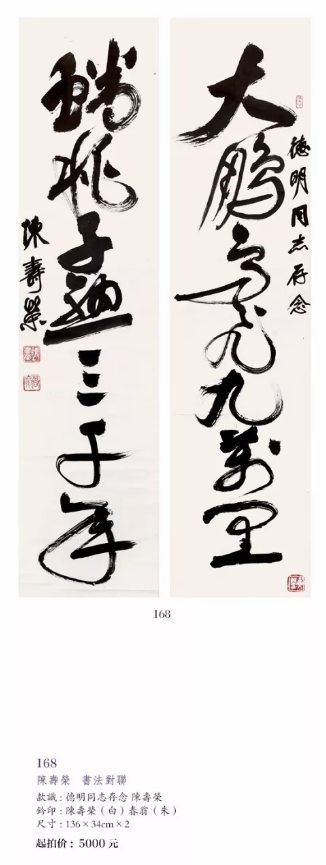 德明同志存念
大鵬高飛九萬里
蟠桃子熟三千年
陳壽榮
168
168
陳壽榮 書法對聯
款識：德明同志存念 陳壽榮
鈐印：陳壽榮（白）春翁（朱）
尺寸：136×34cm×2
起拍价：5000 元